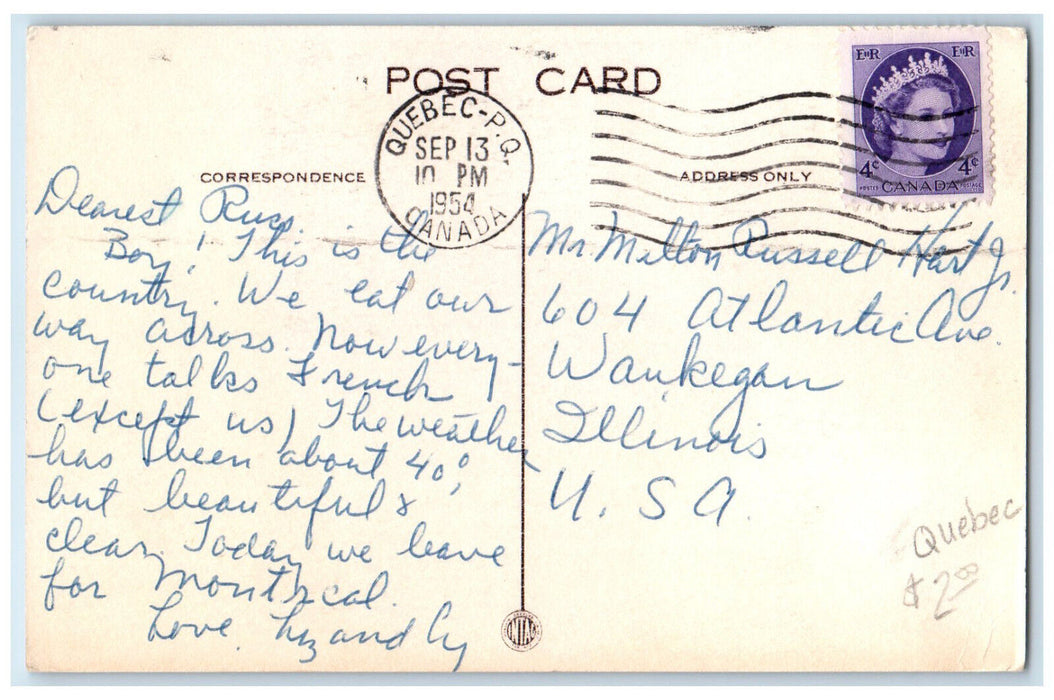 POST CARD
QUEBEC-P.Q.
SEP 13
10 PM
1954
CANADA
EIIR EIIR
4¢ 4¢
POSTES CANADA POSTAGE
CORRESPONDENCE
ADDRESS ONLY
Dearest Russ,
Boy! This is the
country. We eat our
way across. Now every-
one talks French
(except us) The weather
has been about 40°,
but beautiful &
clear. Today we leave
for Montreal.
Love, Liz and Cy
Mr. Milton Russell Hart Jr.
604 Atlantic Ave.
Waukegan
Illinois
U.S.A.
Quebec
$2.00